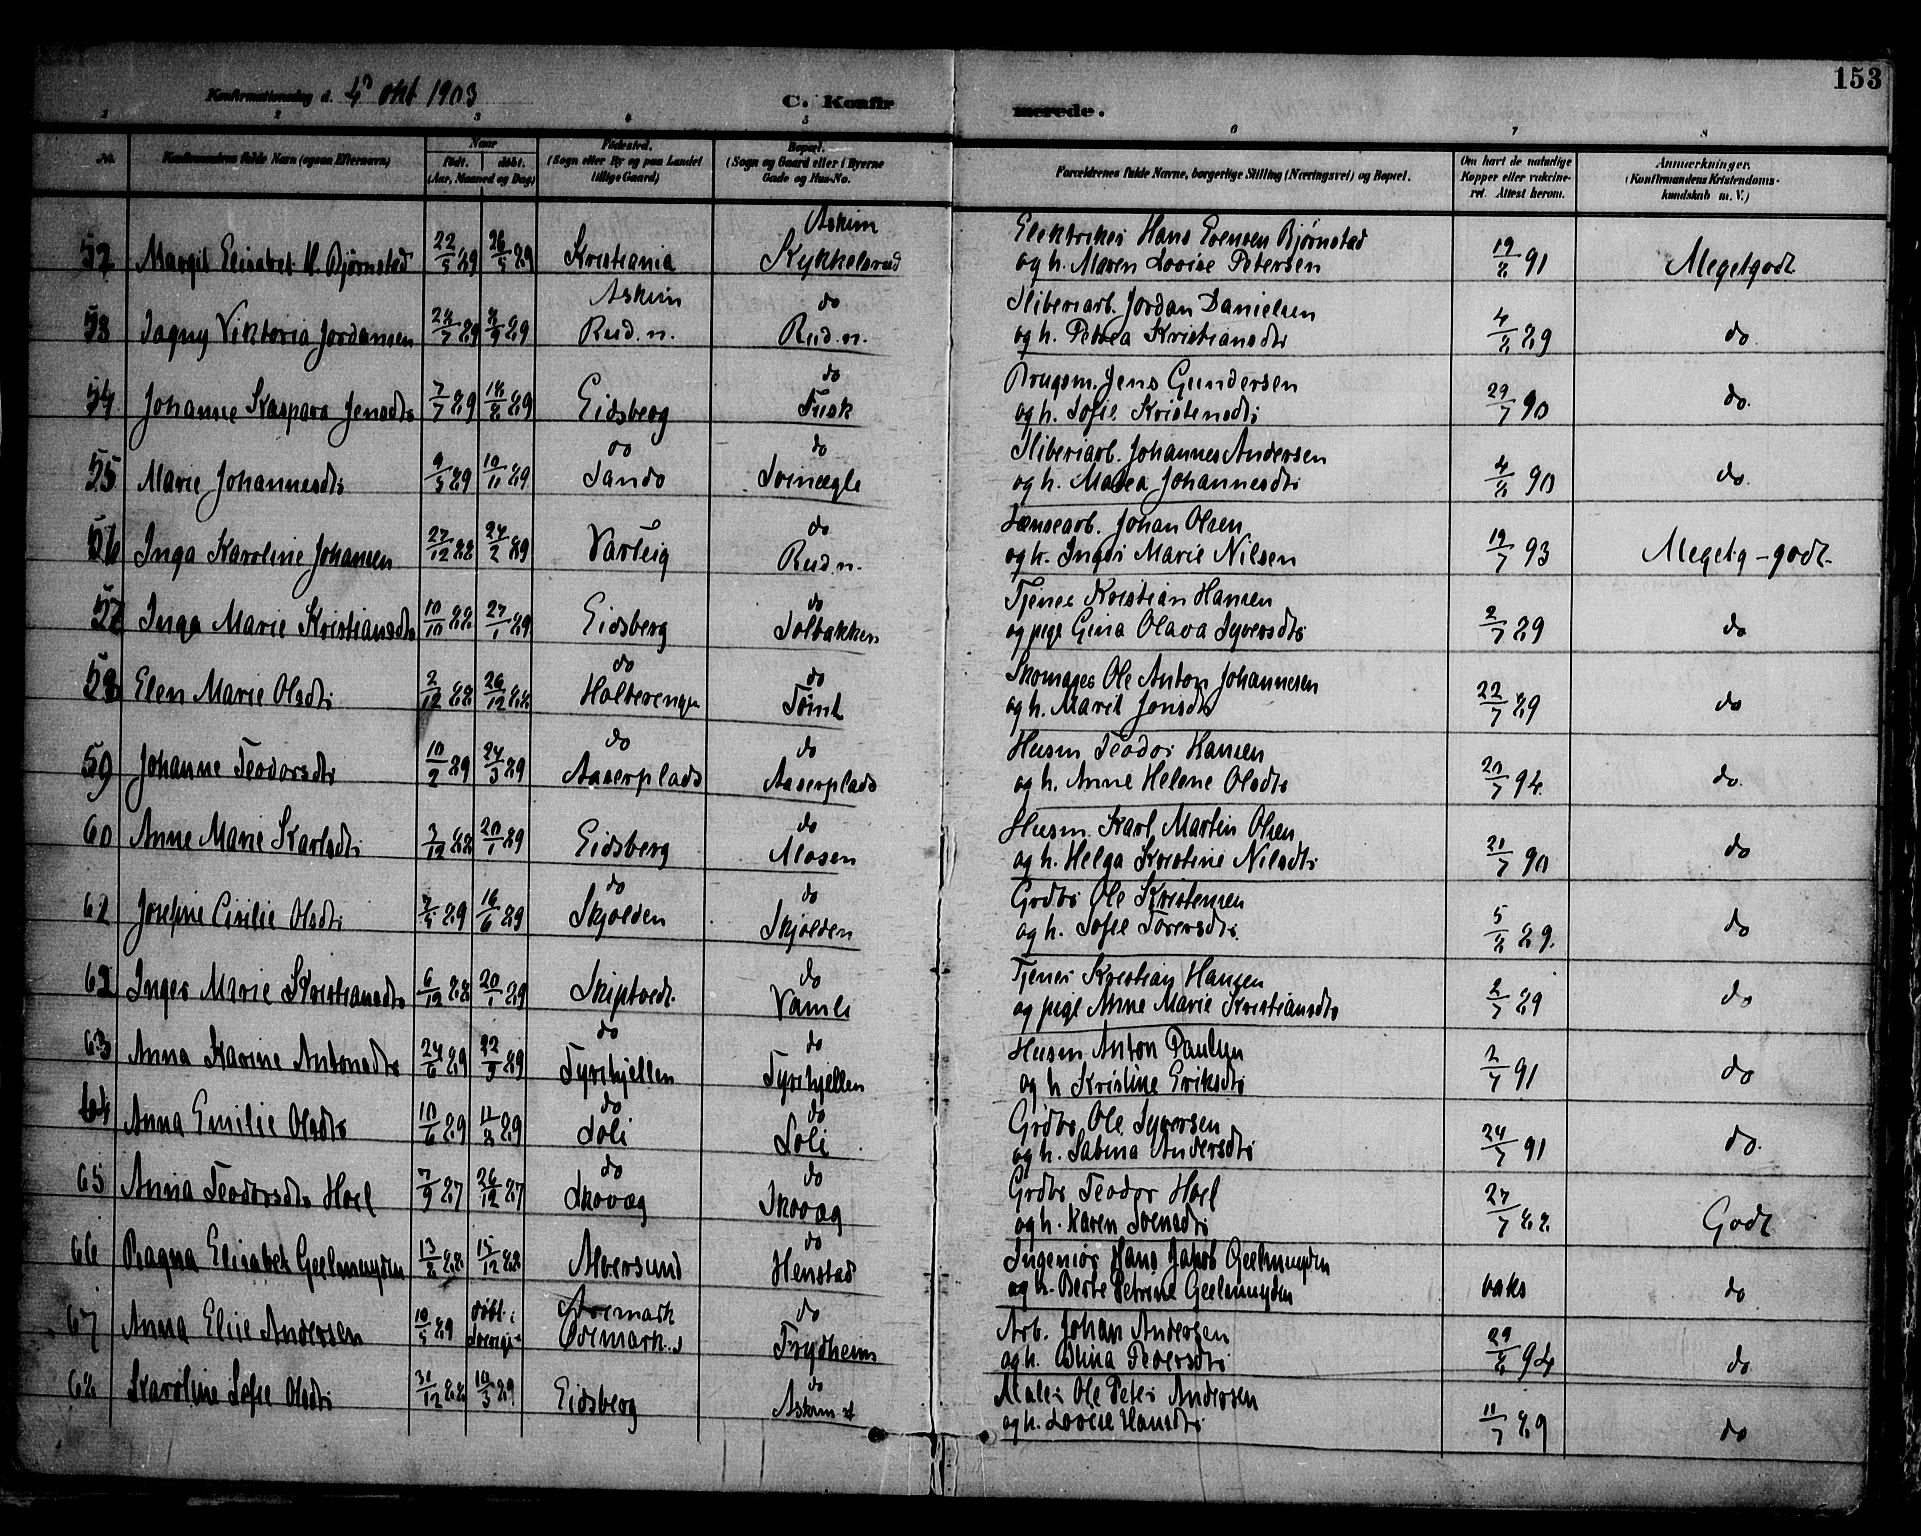 153
Konfirmationsdag d. 4de okt 1903
C. Konfirmerede.
1 2 3 4 5 6 7 8
No. Konfirmandens fulde Navn (ogsaa Efternavn) Naar født. døbt. (Aar, Maaned og Dag) Fødested. (Sogn eller By og paa Landet tillige Gaard) Bopæl. (Sogn og Gaard eller i Byerne Gade og Hus-No. Forældrenes fulde Navne, borgerlige Stilling (Næringsvei) og Bopæl. Om havt de naturlige Kopper eller vakcineret. Attest herom. Anmærkninger. (Konfirmandens Kristendomskundskab m. V.)
Askim Elektriker Hans Evensen Bjørnstad
52 Margit Elisabet H. Bjørnstad 22/5 89 26/5 89 Kristiania Kykkelsrud og h. Maren Lovise Petersen 19/8 91 Megetgodt
Askim do Sliberiarb. Jordan Danielsen
53 Dagny Viktoria Jordansen Rud. n. Rud. n. og h. Petrea Kristiansdtr 4/8 89 do
do Brugsm. Jens Gundersen
54 Johanne Kaspara Jensdtr 7/7 89 18/8 89 Eidsberg Fusk og h. Sofie Kristensdtr 29/7 90 do.
do do Sliberiarb. Johannes Andersen
55 Marie Johannesdtr 9/5 89 10/11 89 Sando Svinægle og h. Johannesdtr 4/8 90 do.
do Lænsearb. Johan Olsen
56 Inga Karoline Johansen 27/12 88 24/2 89 Varteig Rud. n. og h. Inger Marie Nilsen 19/7 93 Megetg-godt.
do Tjener Kristian Hansen
57 Inga Marie Kristiansdtr 10/10 88 27/1 89 Eidsberg Solbakken og pige Gina Olava Syversdtr 2/7 89 do
do do Skomager Ole Anton Johannesen
58 Elen Marie Olsdtr 2/12 88 26/12 88 Holterengen Tømt og h. Marit Jonsdtr 22/7 89 do
do do Husm Teodor Hansen
59 Johanne Teodorsdtr 10/2 89 24/3 89 Aaserplads Aaserplads og h. Anne Helene Olsdtr 20/7 94. do.
do Husm. Karl Martin Olsen
60 Anne Marie Karlsdtr 3/12 88 20/1 89 Eidsberg Mosen og h. Helga Kristine Nilsdtr 21/7 90 do
do do Grdbr Ole Kristensen
61 Josefine Cicilie Olsdtr 7/5 89 16/6 89 Skjolden Skjolden og h. Sofie Torersdtr. 5/8 89. do
do Tjener Kristian Hansen
62 Inger Marie Kristiansdtr 6/12 88 20/1 89 Skiptvedt. Vamli og pige Anne Marie Kristiansdtr 2/7 89 do
do do Husm Anton Paulsen
63 Anna Karine Antonsdtr 24/6 89 22/9 89 Tyrihjellen Tyrihjellen og h Kristine Eriksdtr 2/7 91 do
do do Grdbr Ole Syversen
64 Anna Emilie Olsdtr 10/6 89 11/8 89 Loli Loli og h. Sabina Andersdtr 24/7 91 do.
do do Grdbr Teodor Hoel
65 Anna Teodorsdtr Hoel 7/9 87 26/12 87 Skovag Skovag og h. Karen Svensdtr 27/7 88. Godt
do Ingeniør Hans Jakob Geelmuyden
66 Ragna Elisabet Geelmuyden 13/8 88 15/12 88 Alversund Henstad og h. Berte Petrine Geelmuyden vaks do
døbt i do Arb. Johan Andersen
67 Anna Elise Andersen 10/5 89 Sverige Ødemark. Frydheim og h. Peversdtr 29/8 94 do
do Maler Ole Peter Andersen
68 Karoline Sofie Olsdtr 31/12 88 10/3 89 Eidsberg Askim st og h. Lovise Hansdtr 11/7 89 do